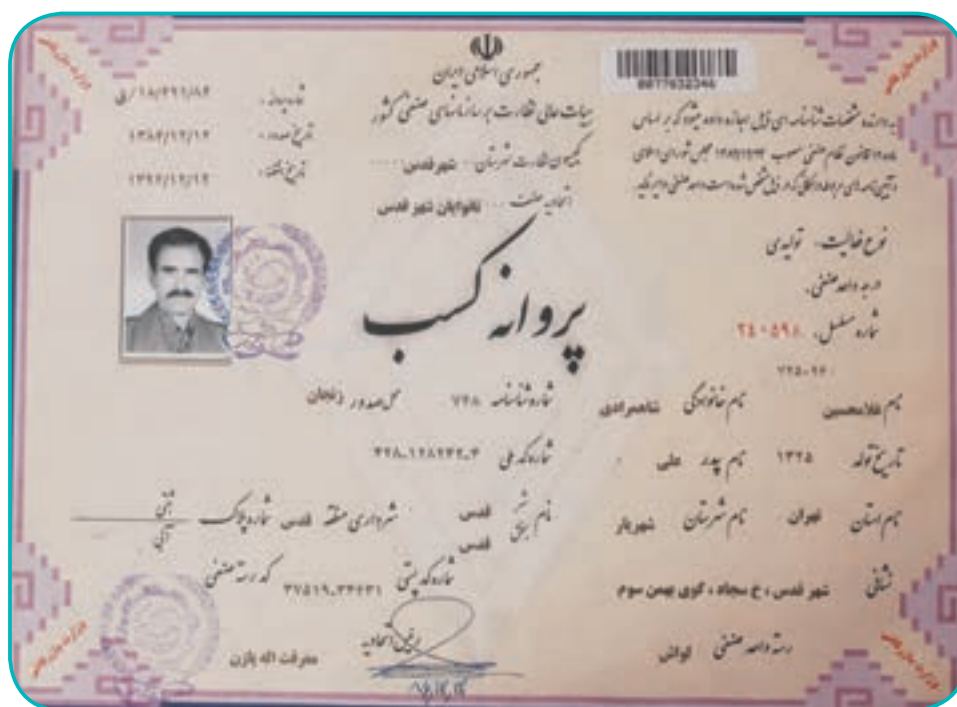 جمهوری اسلامی ایران
هیات عالی نظارت بر سازمانهای صنفی کشور
کمیسیون نظارت شهرستان شهرقدس
اتحادیه صنف نانوایان شهر قدس
شماره پروانه: ۱۸/۴۹۹/۸۴/ق
تاریخ صدور: ۱۳۸۴/۱۲/۱۴
تاریخ انقضاء: ۱۳۹۴/۱۲/۱۴
0077632346
به دارنده مشخصات شناسنامه ای ذیل اجازه داده میشود که بر اساس
ماده ۱۲ قانون نظام صنفی مصوب ۱۳۸۲/۱۲/۲۴ مجلس شورای اسلامی
و آیین نامه های مربوط در محلی که در ذیل مشخص شده است واحد صنفی دایر نماید.
نوع فعالیت تولیدی
درجه واحد صنفی:
شماره مسلسل: ۲۴۰۵۹۸
۷۲۵-۹۴۰
پروانه کسب
نام غلامحسین نام خانوادگی شاهمرادی شماره شناسنامه ۷۴۸ محل صدور زنجان
تاریخ تولد ۱۳۲۵ نام پدر علی شماره کد ملی ۴۲۸-۱۲۸۲۴۲-۳
نام استان تهران نام شهرستان شهریار نام شهر قدس بخش قدس شهرداری منطقه قدس شماره پلاک ثبتی آبی
نشانی شهر قدس ، خ سجاد ، کوی بهمن سوم شماره کد پستی ۳۷۵۱۹-۳۴۶۳۱ کد رسته صنفی
رسته واحد صنفی لواش رئیس اتحادیه معرفت اله یاژن